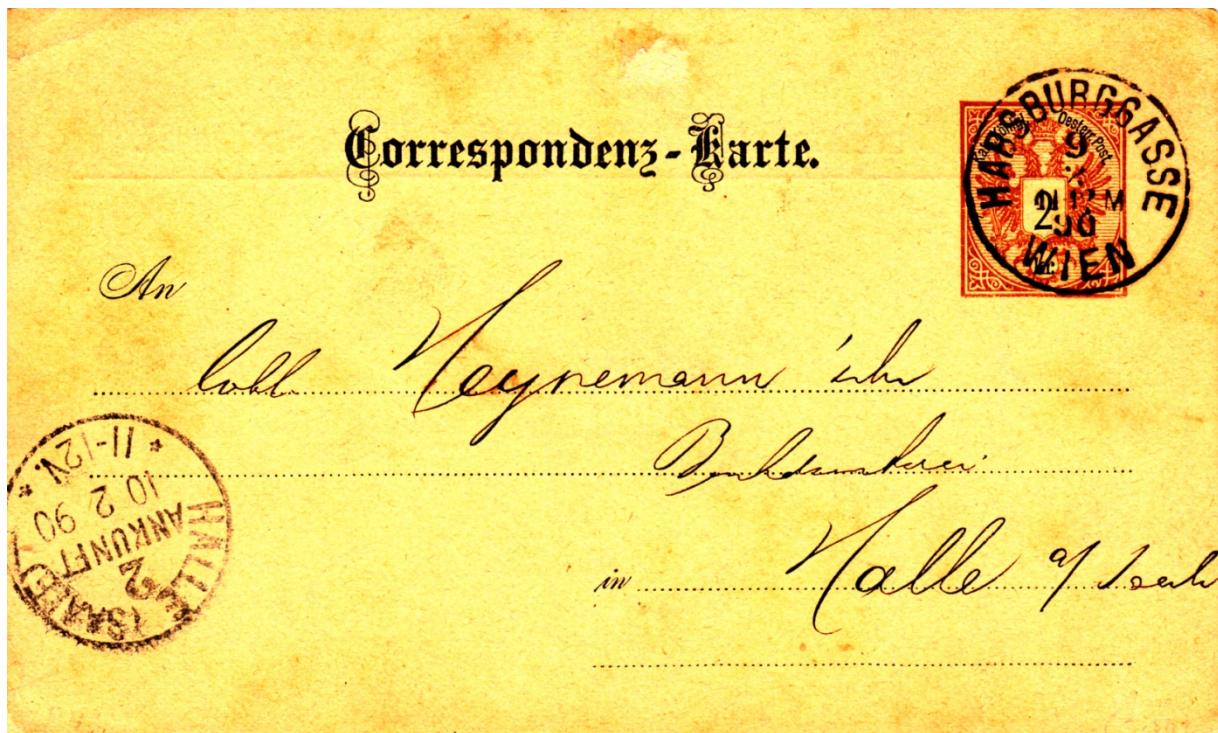 Correspondenz-Karte.
Kais. Königl. Oesterr. Post
2
HABSBURGGASSE
9
90
WIEN
An
Löbl Heynemann'sche
Buchdruckerei
in Halle a/ Saale
HALLE (SAALE)
2
ANKUNFT
10 2 90
* 11-12V. *